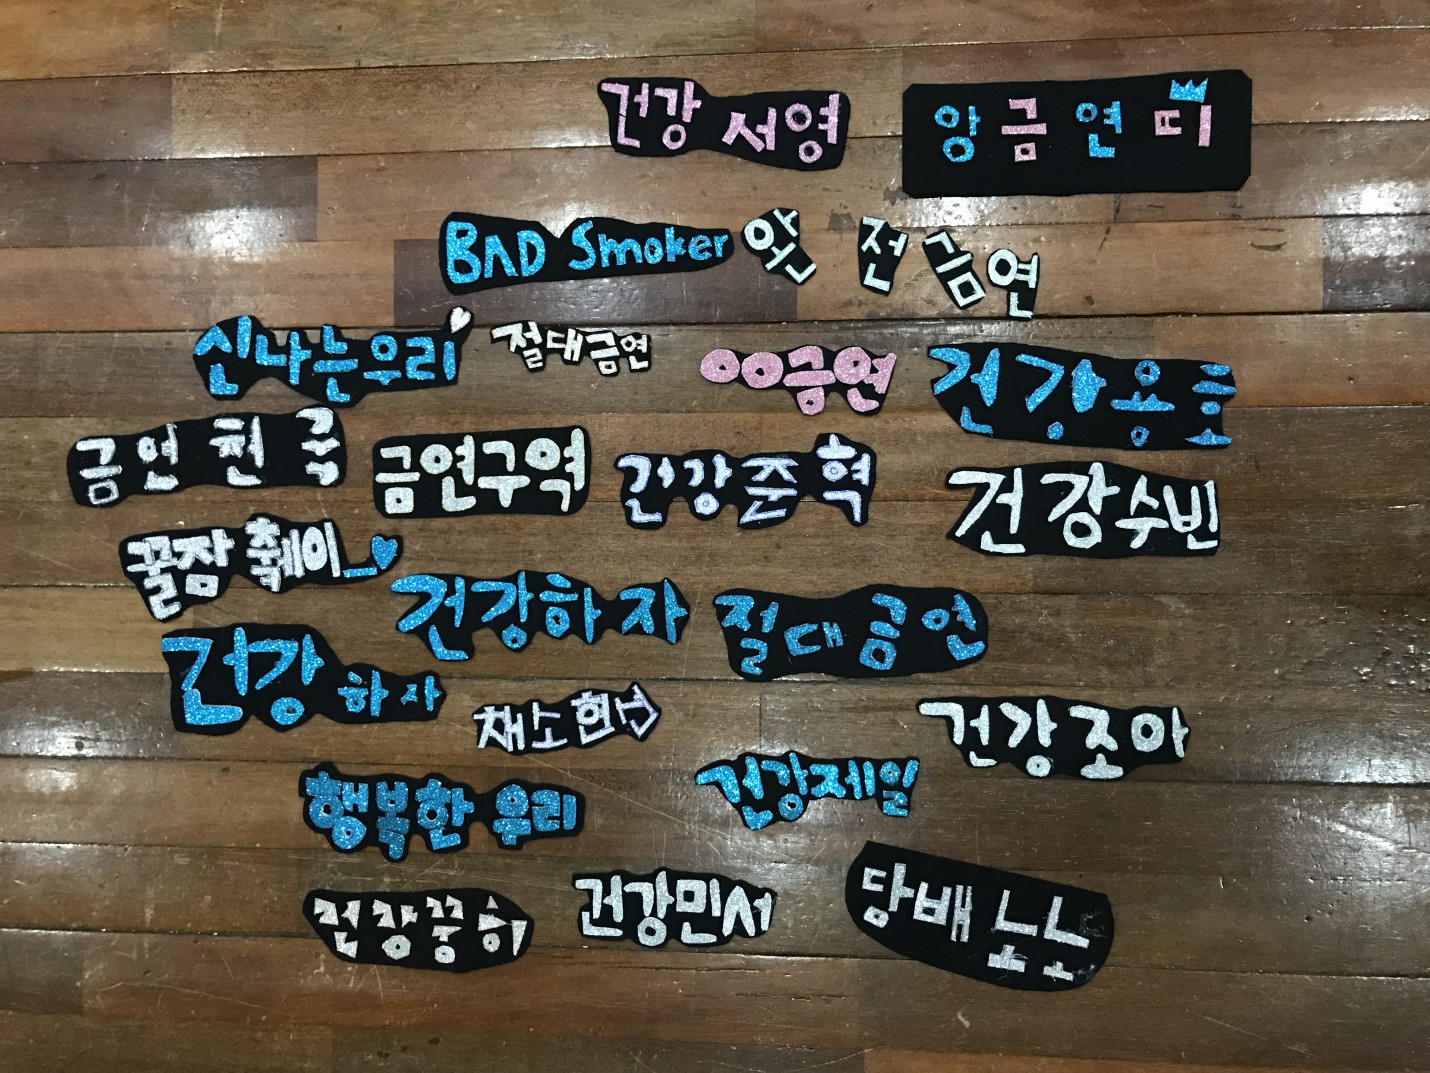 건강 서영
앙 금 연 띠
BAD Smoker
완 전 금 연
신나는우리
절대금연
ㅇㅇ금연
금연구역
건강준혁
건강수빈
꿀잠
건강하자
절대금연
건강
하자
건강조아
행복한 우리
건강제일
건강꿍
건강민서
당배 노노